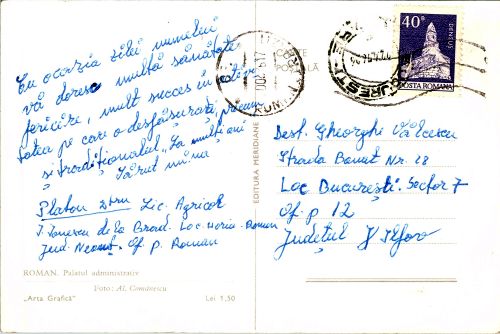 Cu ocazia zilei numelui
vă doresc multă sănătate
fericire, mult succes în activi-
tatea pe care o desfășurați, precum
și tradiționalul „La mulți ani"
Sărut mîna
Platon Lic. Agricol
I. Ionescu de la Brad. Loc. Horia-Roman
Jud. Neamț. Of. p. Roman
ROMAN. Palatul administrativ
Foto: Al. Comănescu
„Arta Grafică" Lei 1,50
EDITURA MERIDIANE
CARTE
POȘTALĂ
40B
DENSUȘ
POSTA ROMANA
Dest. Gheorghe Vâlcescu
Strada Banat Nr. 28
Loc. București. Sector 7
Of. p 12
Județul Ilfov